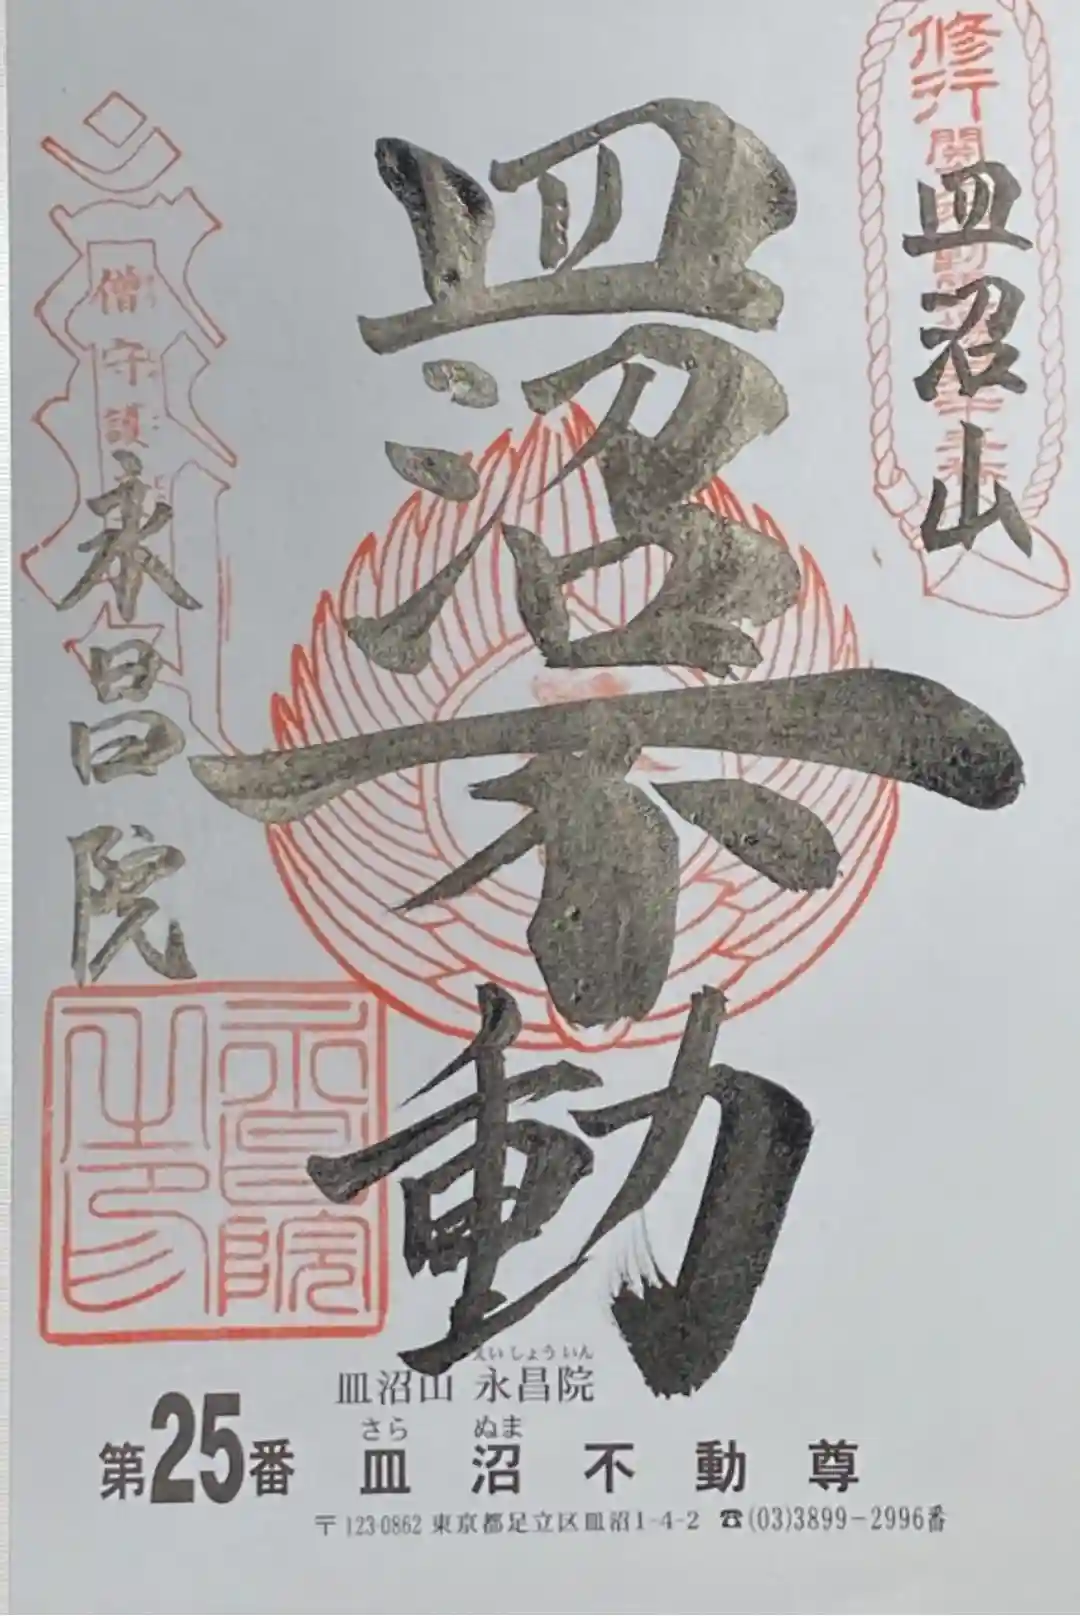 修行
皿沼山
皿沼不動
僧守護
永昌院
永昌院
之印
えいしょういん
皿沼山 永昌院
さら ぬま
第25番 皿沼不動尊
〒123-0862 東京都足立区皿沼1-4-2 ☎(03)3899-2996番